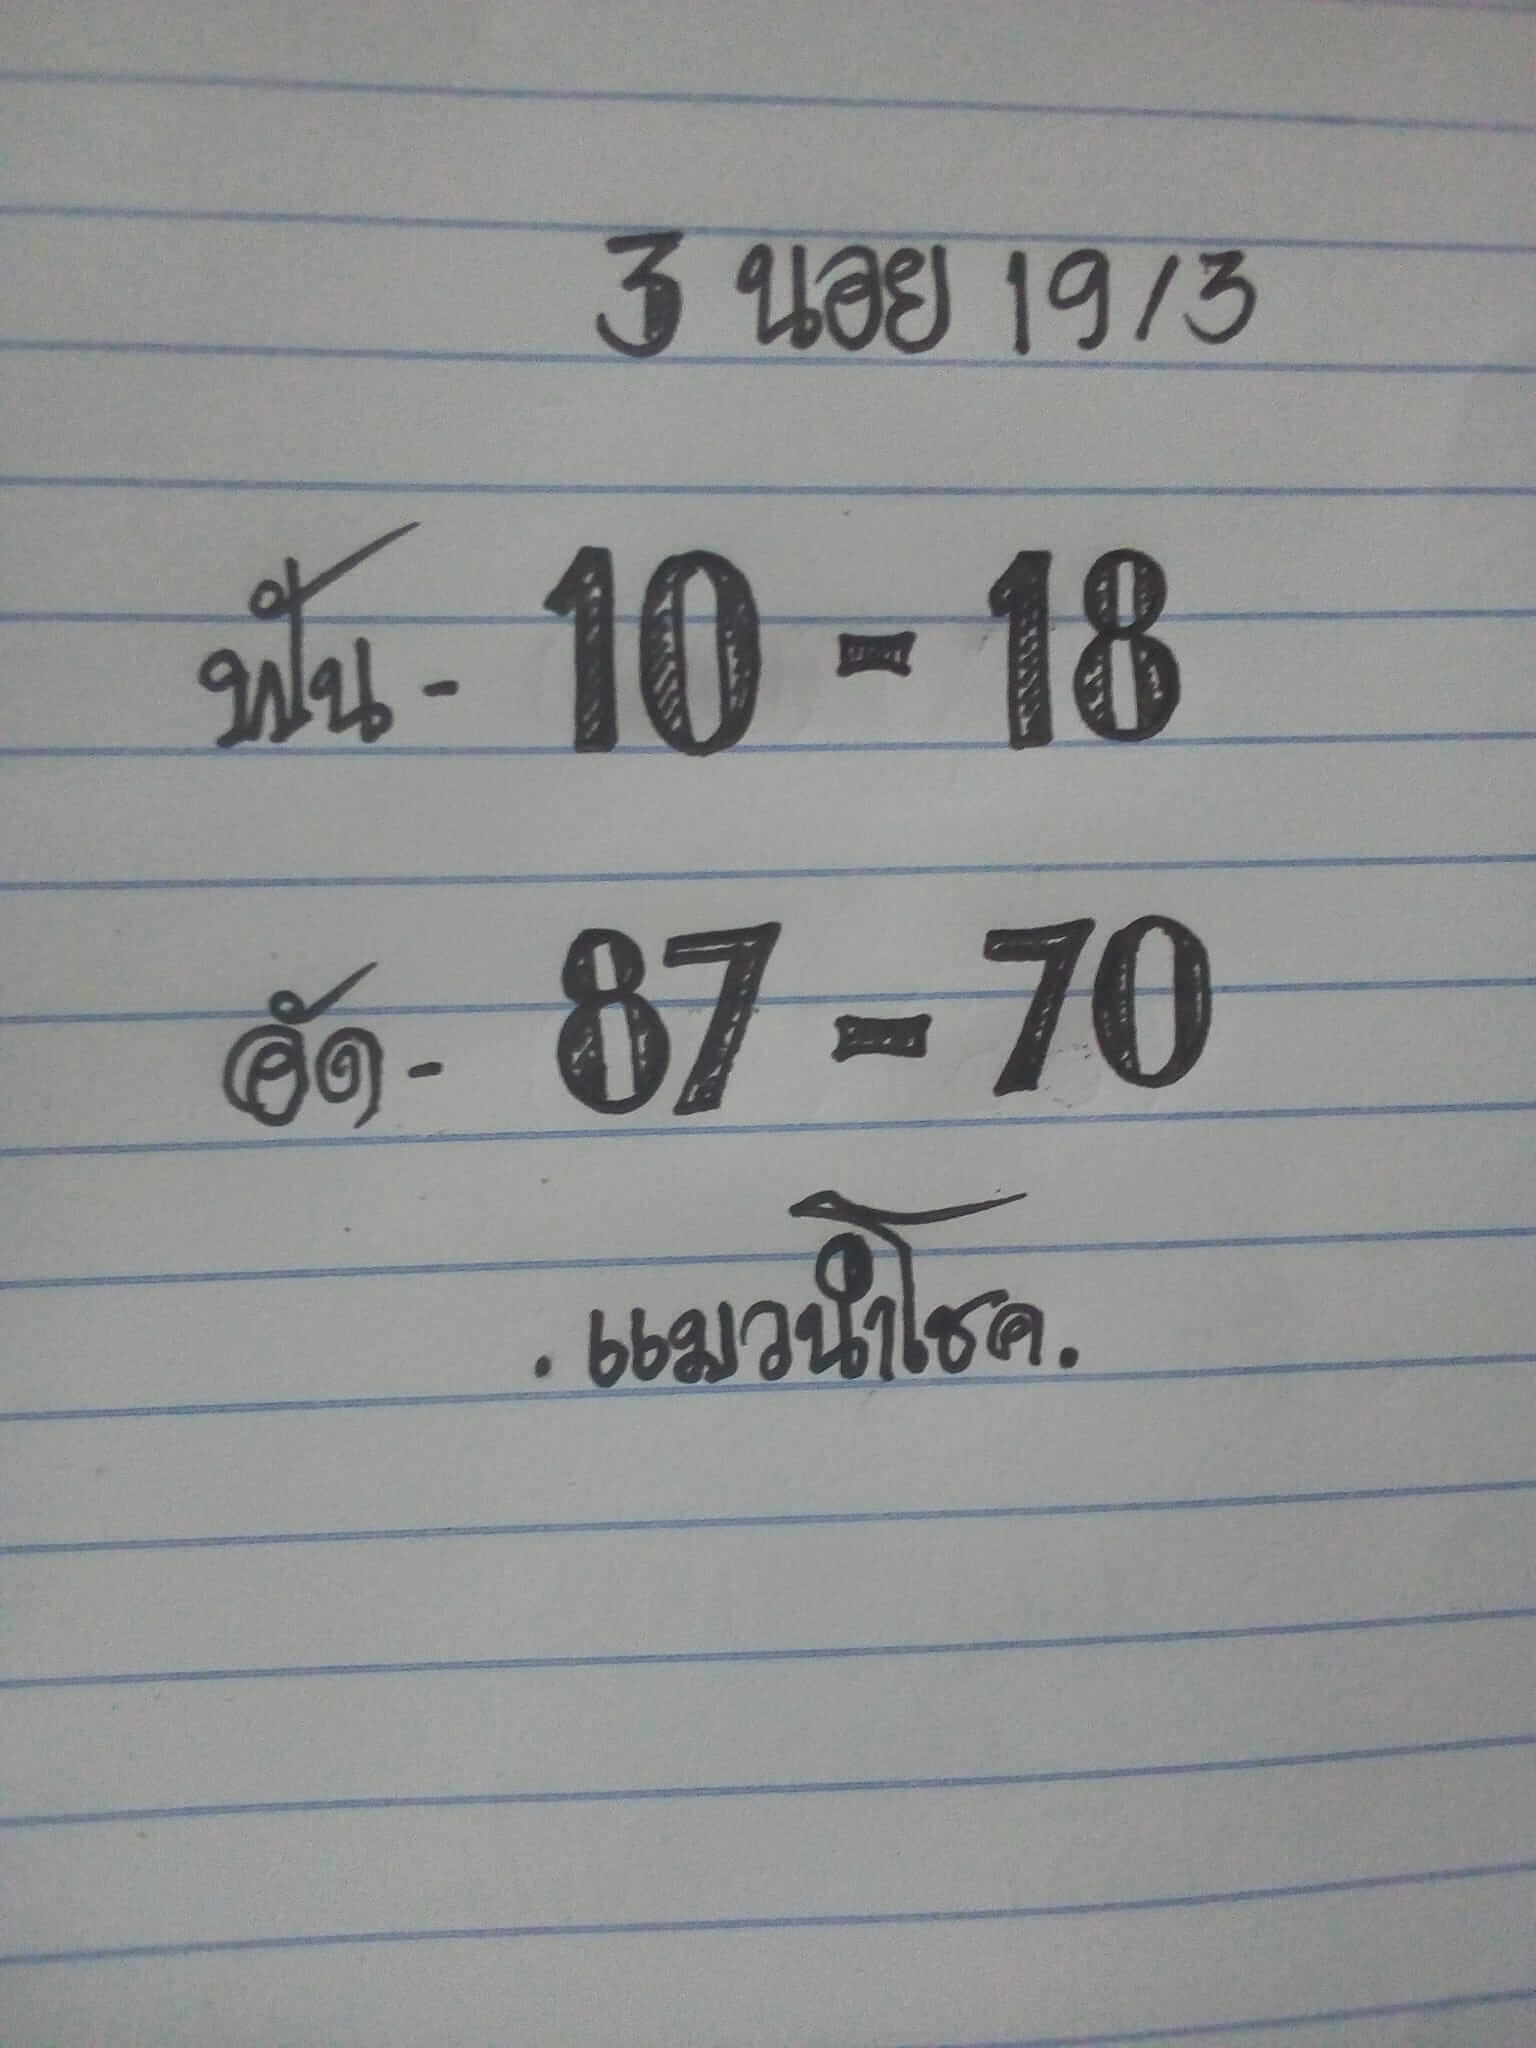 3 นอย 19/3
ฟัน - 10 - 18
อัด - 87 - 70
. แมวนำโชค .